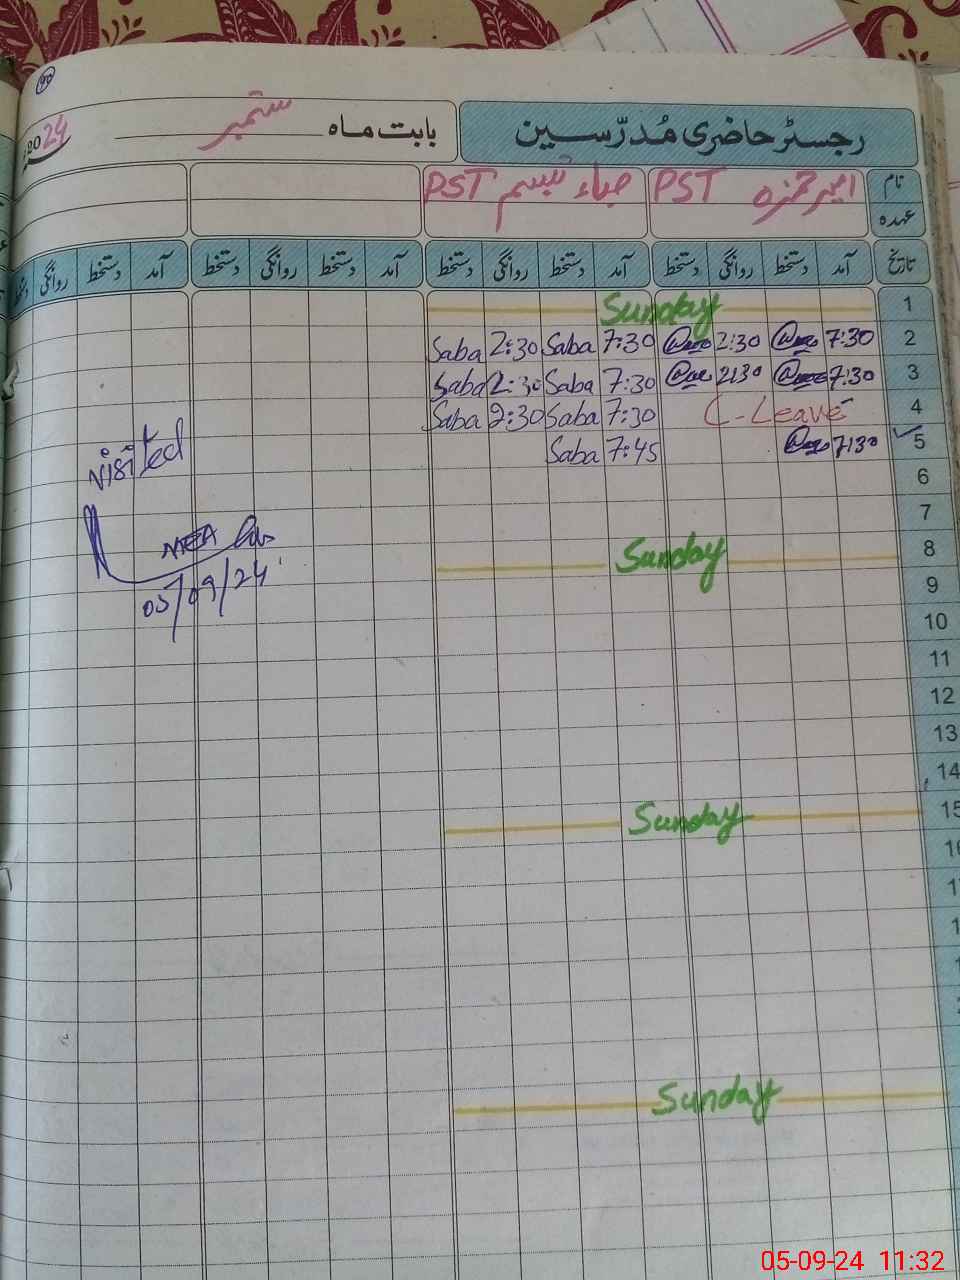 40
رجسٹر حاضری مُدرّسین
بابت ماہ ستمبر 2024
نام امیر حمزہ PST صباء تبسم PST
عہدہ
تاریخ آمد دستخط روانگی دستخط آمد دستخط روانگی دستخط آمد دستخط روانگی دستخط آمد دستخط روانگی دستخط
Sunday 1
Saba 2:30 Saba 7:30 2:30 7:30 2
Saba 2:30 Saba 7:30 2:30 7:30 3
Saba 2:30 Saba 7:30 C-Leave 4
Saba 7:45 7:30 5
6
visited
7
MEA
Sunday 8
05/09/24
9
10
11
12
13
14
Sunday 15
Sunday
05-09-24 11:32